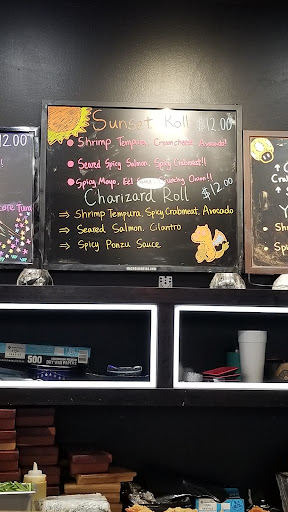 Sunset Roll $12.00
Shrimp Tempura, Cream cheese, Avocado!
Seared Spicy Salmon, Spicy Crabmeat!!
Spicy Mayo, Eel Crunchy Onion!!
Charizard Roll $12.00
⇒ Shrimp Tempura, Spicy Crabmeat, Avocado
⇒ Seared Salmon, Cilantro
⇒ Spicy Ponzu Sauce
2.00
Tuna
500